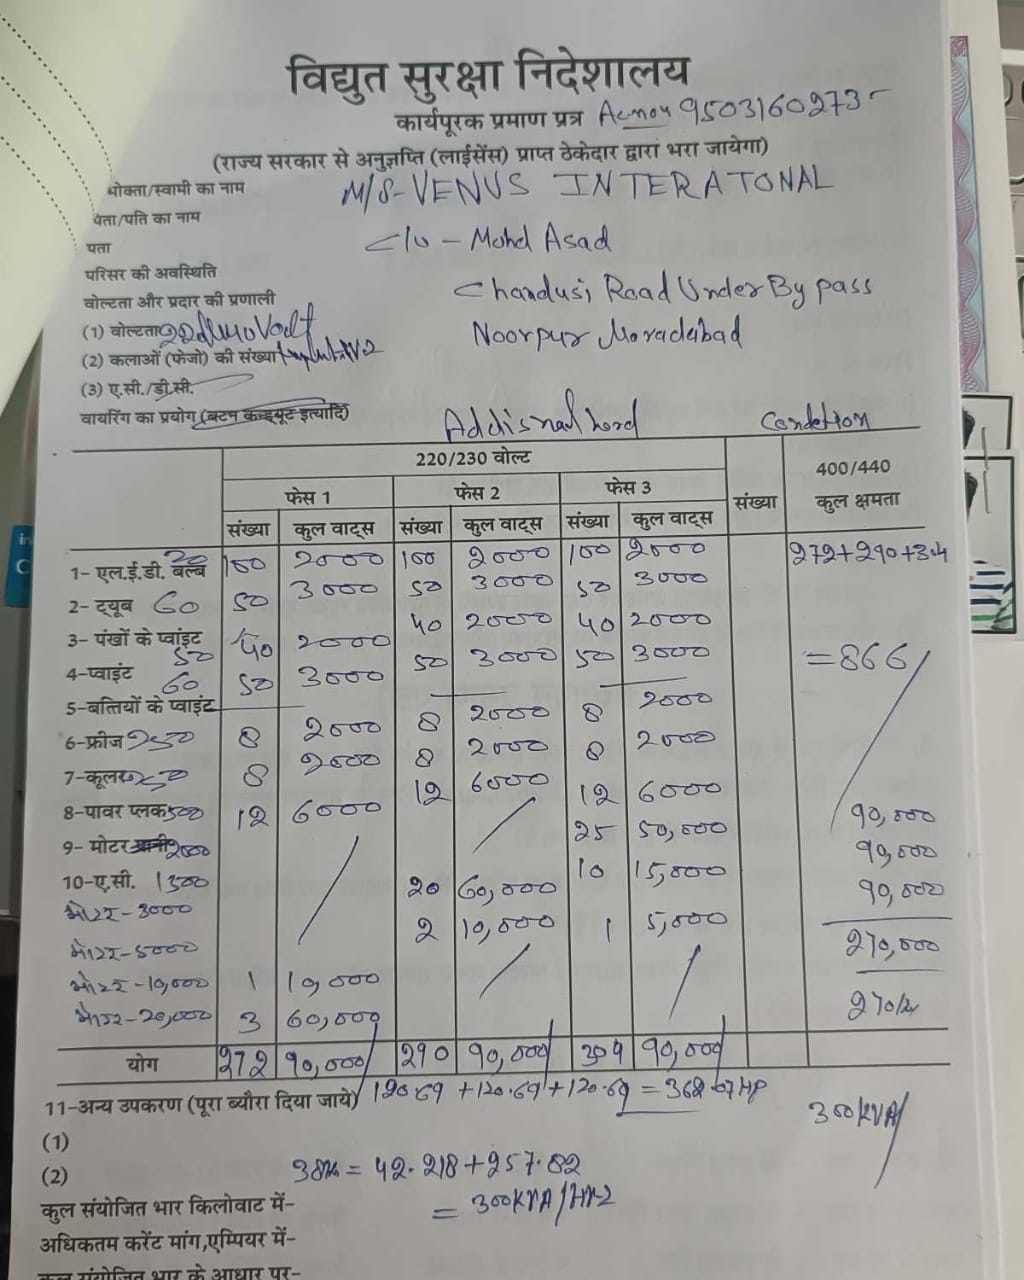 विद्युत सुरक्षा निदेशालय
कार्यपूरक प्रमाण प्रत्र Acnou 9503160273
(राज्य सरकार से अनुज्ञप्ति (लाईसेंस) प्राप्त ठेकेदार द्वारा भरा जायेगा)
भोक्ता/स्वामी का नाम M/S-VENUS INTERATONAL
पता/पति का नाम
पता C/o - Mohd Asad
परिसर की अवस्थिति Chandusi Road Under By pass
वोल्टता और प्रदार की प्रणाली
(1) वोल्टता Volt Noorpur Moradabad
(2) कलाओं (फेजो) की संख्या
(3) ए.सी./डी.सी.
वायरिंग का प्रयोग (बटन कन्ड्यूट इत्यादि) Addisnail Lord Condetion
220/230 वोल्ट 400/440
फेस 1 फेस 2 फेस 3 संख्या कुल क्षमता
संख्या कुल वाट्स संख्या कुल वाट्स संख्या कुल वाट्स
1- एल.ई.डी. बल्ब 20 100 2000 100 2000 100 2000 272+290+304
2- ट्यूब 60 50 3000 50 3000 50 3000
3- पंखों के प्वांइट 50 40 2000 40 2000 40 2000
4-प्वाइंट 60 50 3000 50 3000 50 3000 =866/
5-बत्तियों के प्वाइंट
6-फ्रीज 250 8 2000 8 2000 8 2000
7-कूलर 250 8 2000 8 2000 8 2000
8-पावर प्लक 500 12 6000 12 6000 12 6000 90,000
9- मोटर 2000 25 50,000 90,000
10-ए.सी. 1500 10 15,000 90,000
मोटर-3000 20 60,000
मोटर-5000 2 10,000 1 5,000 270,000
मोटर-10,000 1 10,000
मोटर-20,000 3 60,000
योग 272 90,000/ 290 90,000/ 304 90,000/
11-अन्य उपकरण (पूरा ब्यौरा दिया जाये) 120.69 +120.69 +120.69 = 362.07 HP
(1) 300KVA/
(2) = 42.218+257.82
कुल संयोजित भार किलोवाट में- = 300KVA/
अधिकतम करेंट मांग,एम्पियर में-
कुल संयोजित भार के आधार पर-